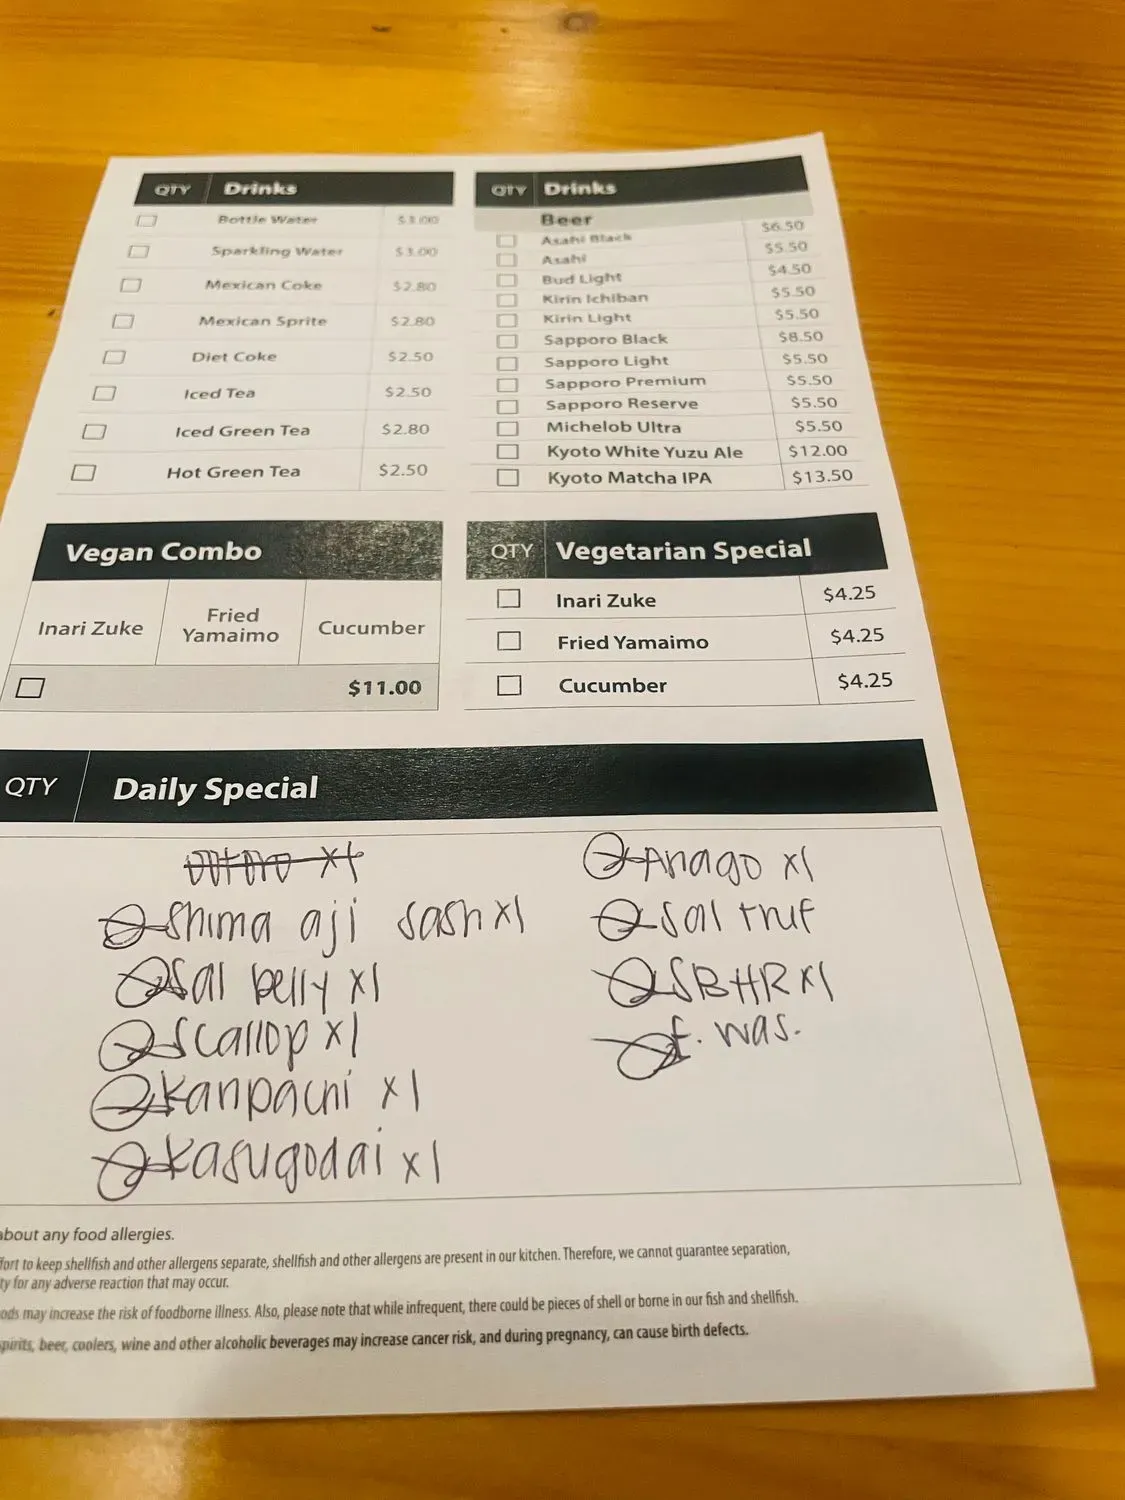 QTY Drinks
Bottle Water $3.00
Sparkling Water $3.00
Mexican Coke $2.80
Mexican Sprite $2.80
Diet Coke $2.50
Iced Tea $2.50
Iced Green Tea $2.80
Hot Green Tea $2.50
QTY Drinks
Beer
Asahi Black $6.50
Asahi $5.50
Bud Light $4.50
Kirin Ichiban $5.50
Kirin Light $5.50
Sapporo Black $8.50
Sapporo Light $5.50
Sapporo Premium $5.50
Sapporo Reserve $5.50
Michelob Ultra $5.50
Kyoto White Yuzu Ale $12.00
Kyoto Matcha IPA $13.50
Vegan Combo
Inari Zuke
Fried
Yamaimo
Cucumber
$11.00
QTY Vegetarian Special
Inari Zuke $4.25
Fried Yamaimo $4.25
Cucumber $4.25
QTY Daily Special
shima aji sash x1
sal belly x1
scallop x1
kanpachi x1
kasugodai x1
Anago x1
sal truf
SBHR x1
f. was.
about any food allergies.
fort to keep shellfish and other allergens separate, shellfish and other allergens are present in our kitchen. Therefore, we cannot guarantee separation,
ty for any adverse reaction that may occur.
ods may increase the risk of foodborne illness. Also, please note that while infrequent, there could be pieces of shell or borne in our fish and shellfish.
spirits, beer, coolers, wine and other alcoholic beverages may increase cancer risk, and during pregnancy, can cause birth defects.